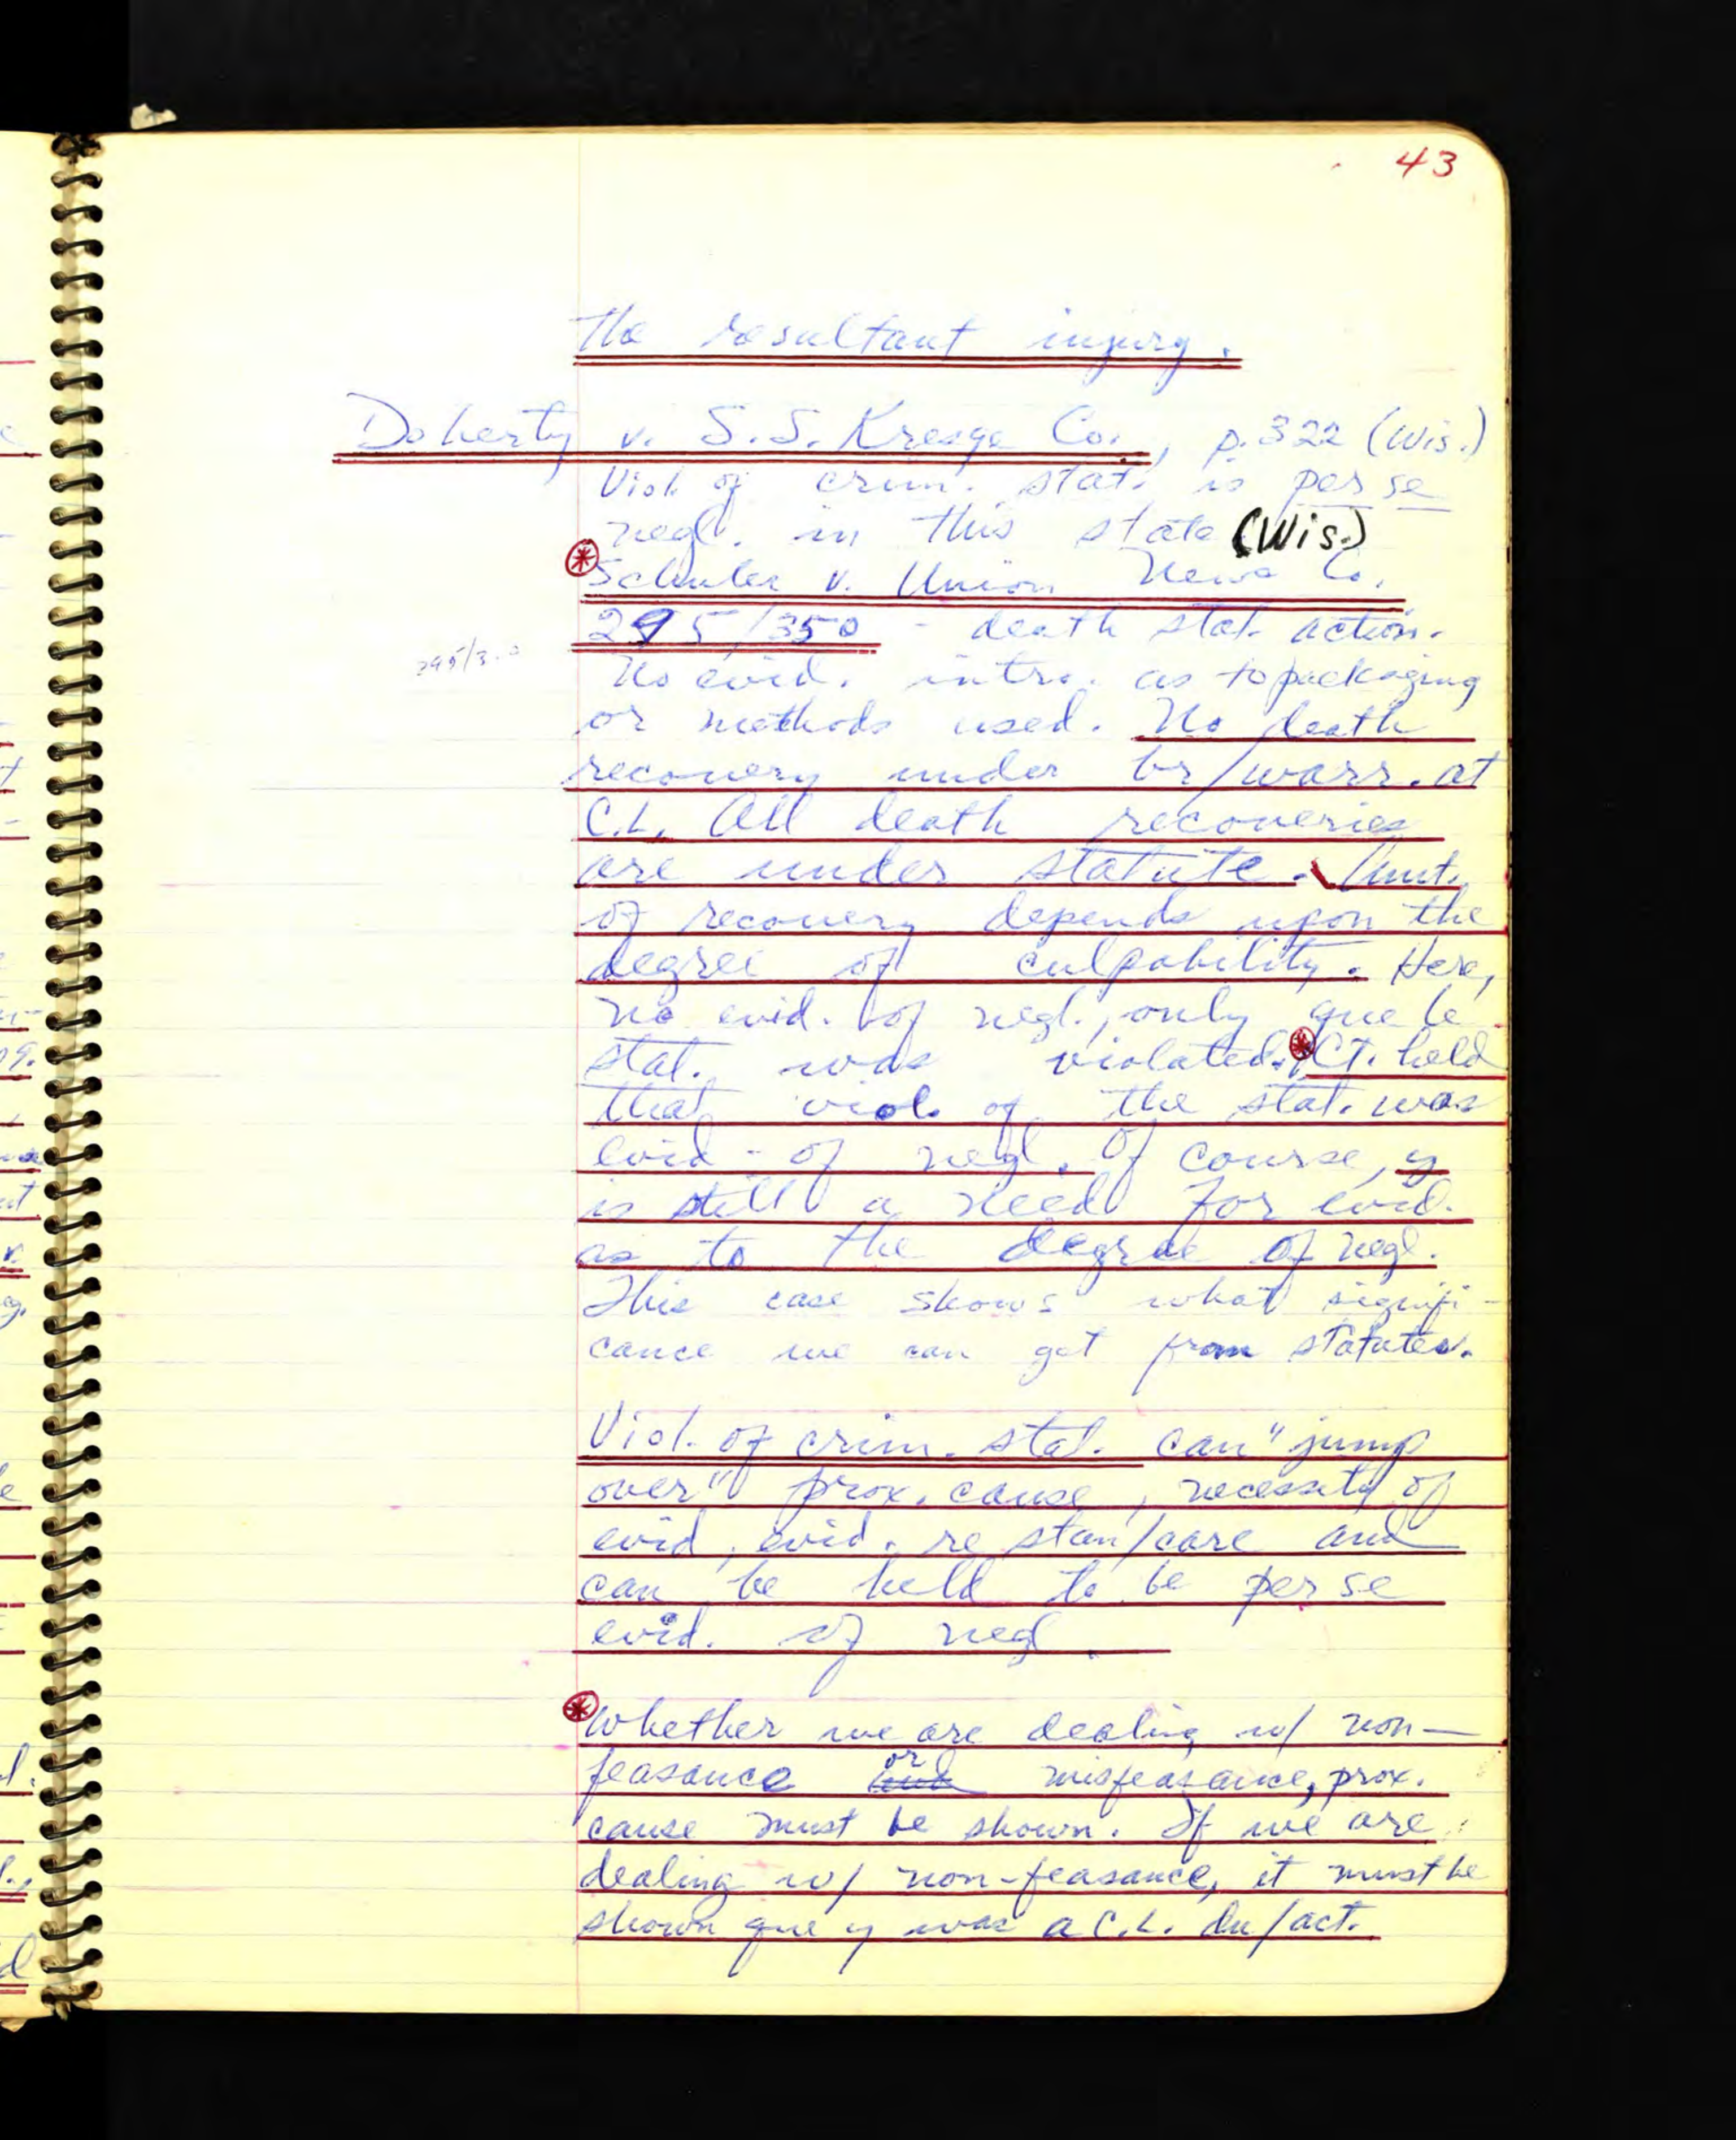 43
the resultant injury.
Doherty v. S.S. Kresge Co., p.322 (Wis.)
Viol. of crim. stat. is per se
negl. in this state (Wis.)
Schuler v. Union News Co.
295/350 - death stat. action.
295/3
No evid. intro. as to packaging
or methods used. No death
recovery under br/warr. at
C.L. All death recoveries
are under statute. Amt.
of recovery depends upon the
degree of culpability. Here,
no evid. of negl., only que le
stat. was violated. Ct. held
that viol. of the stat. was
evid. of negl. Of course, y
is still a need for evid.
as to the degree of negl.
This case shows what signifi-
cance we can get from statutes.
Viol. of crim. stat. can "jump
over" prox. cause, necessity of
evid, evid. re stan/care and
can be held to be per se
evid. of negl.
Whether we are dealing w/ non-
feasance or misfeasance, prox.
cause must be shown. If we are
dealing w/ non-feasance, it must be
shown que y was a C.L. du/act.